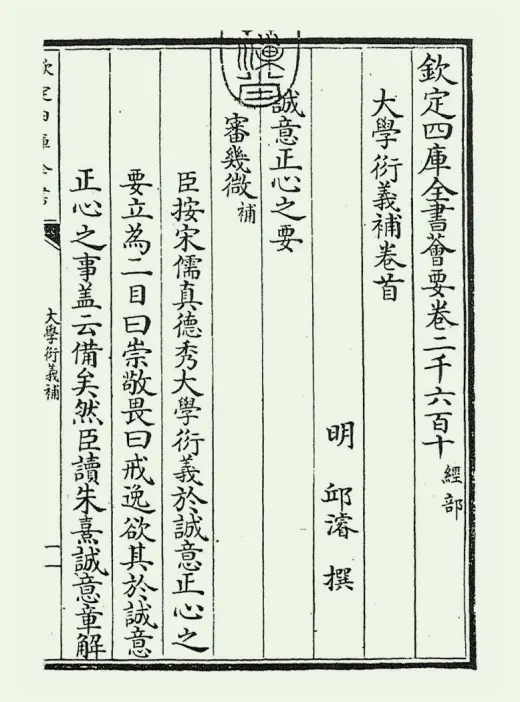 欽定四庫全書薈要卷二千六百十 經部
大學衍義補卷首
明 邱濬 撰
誠意正心之要
審幾微補
臣按宋儒真德秀大學衍義於誠意正心之
要立為二目曰崇敬畏曰戒逸欲其於誠意
正心之事盖云備矣然臣讀朱熹誠意章解
欽定四庫全書
大學衍義補
一